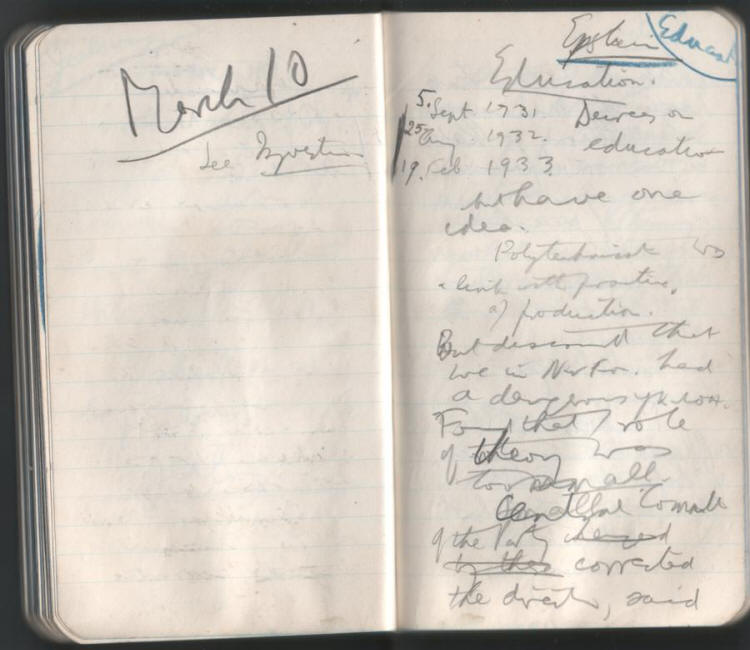 March 10
See Izvestia
Epstein
Educat
Education.
5. Sept 1931. Decrees on
25 Aug 1932. education
19. Feb 1933
but have one
idea.
Polytechnist
link with practice
of production.
But discovered that
we in Nar
had
a dangerous
Found that role
of theory was
too small.
Central Committee
of the Party changed
to this corrected
the direction, said